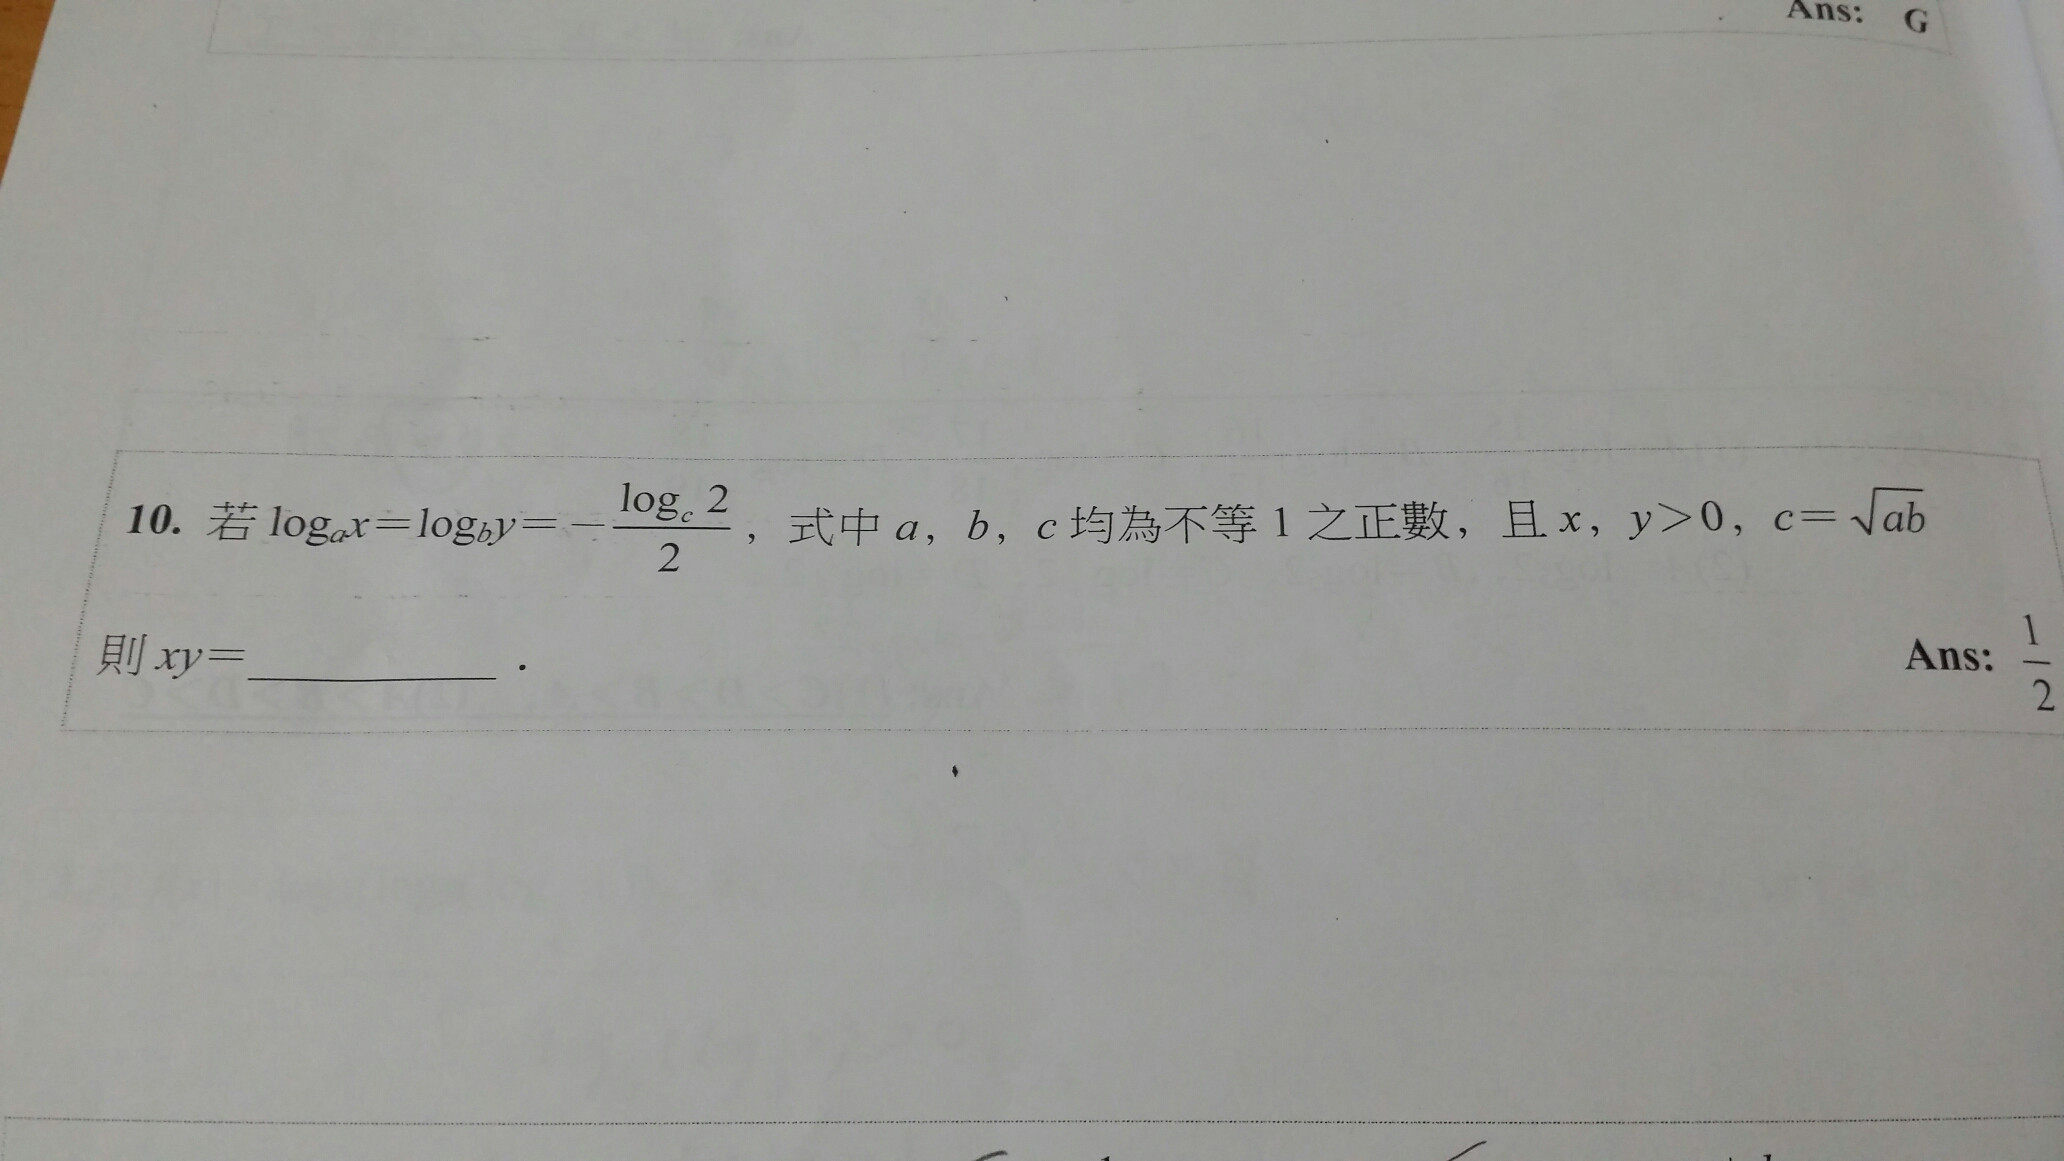 Ans: G
10. 若 logₐx=log_b y=−\frac{log_c 2}{2}，式中 a，b，c 均為不等 1 之正數，且 x，y>0，c=√ab
則 xy=__________．
Ans: \frac{1}{2}